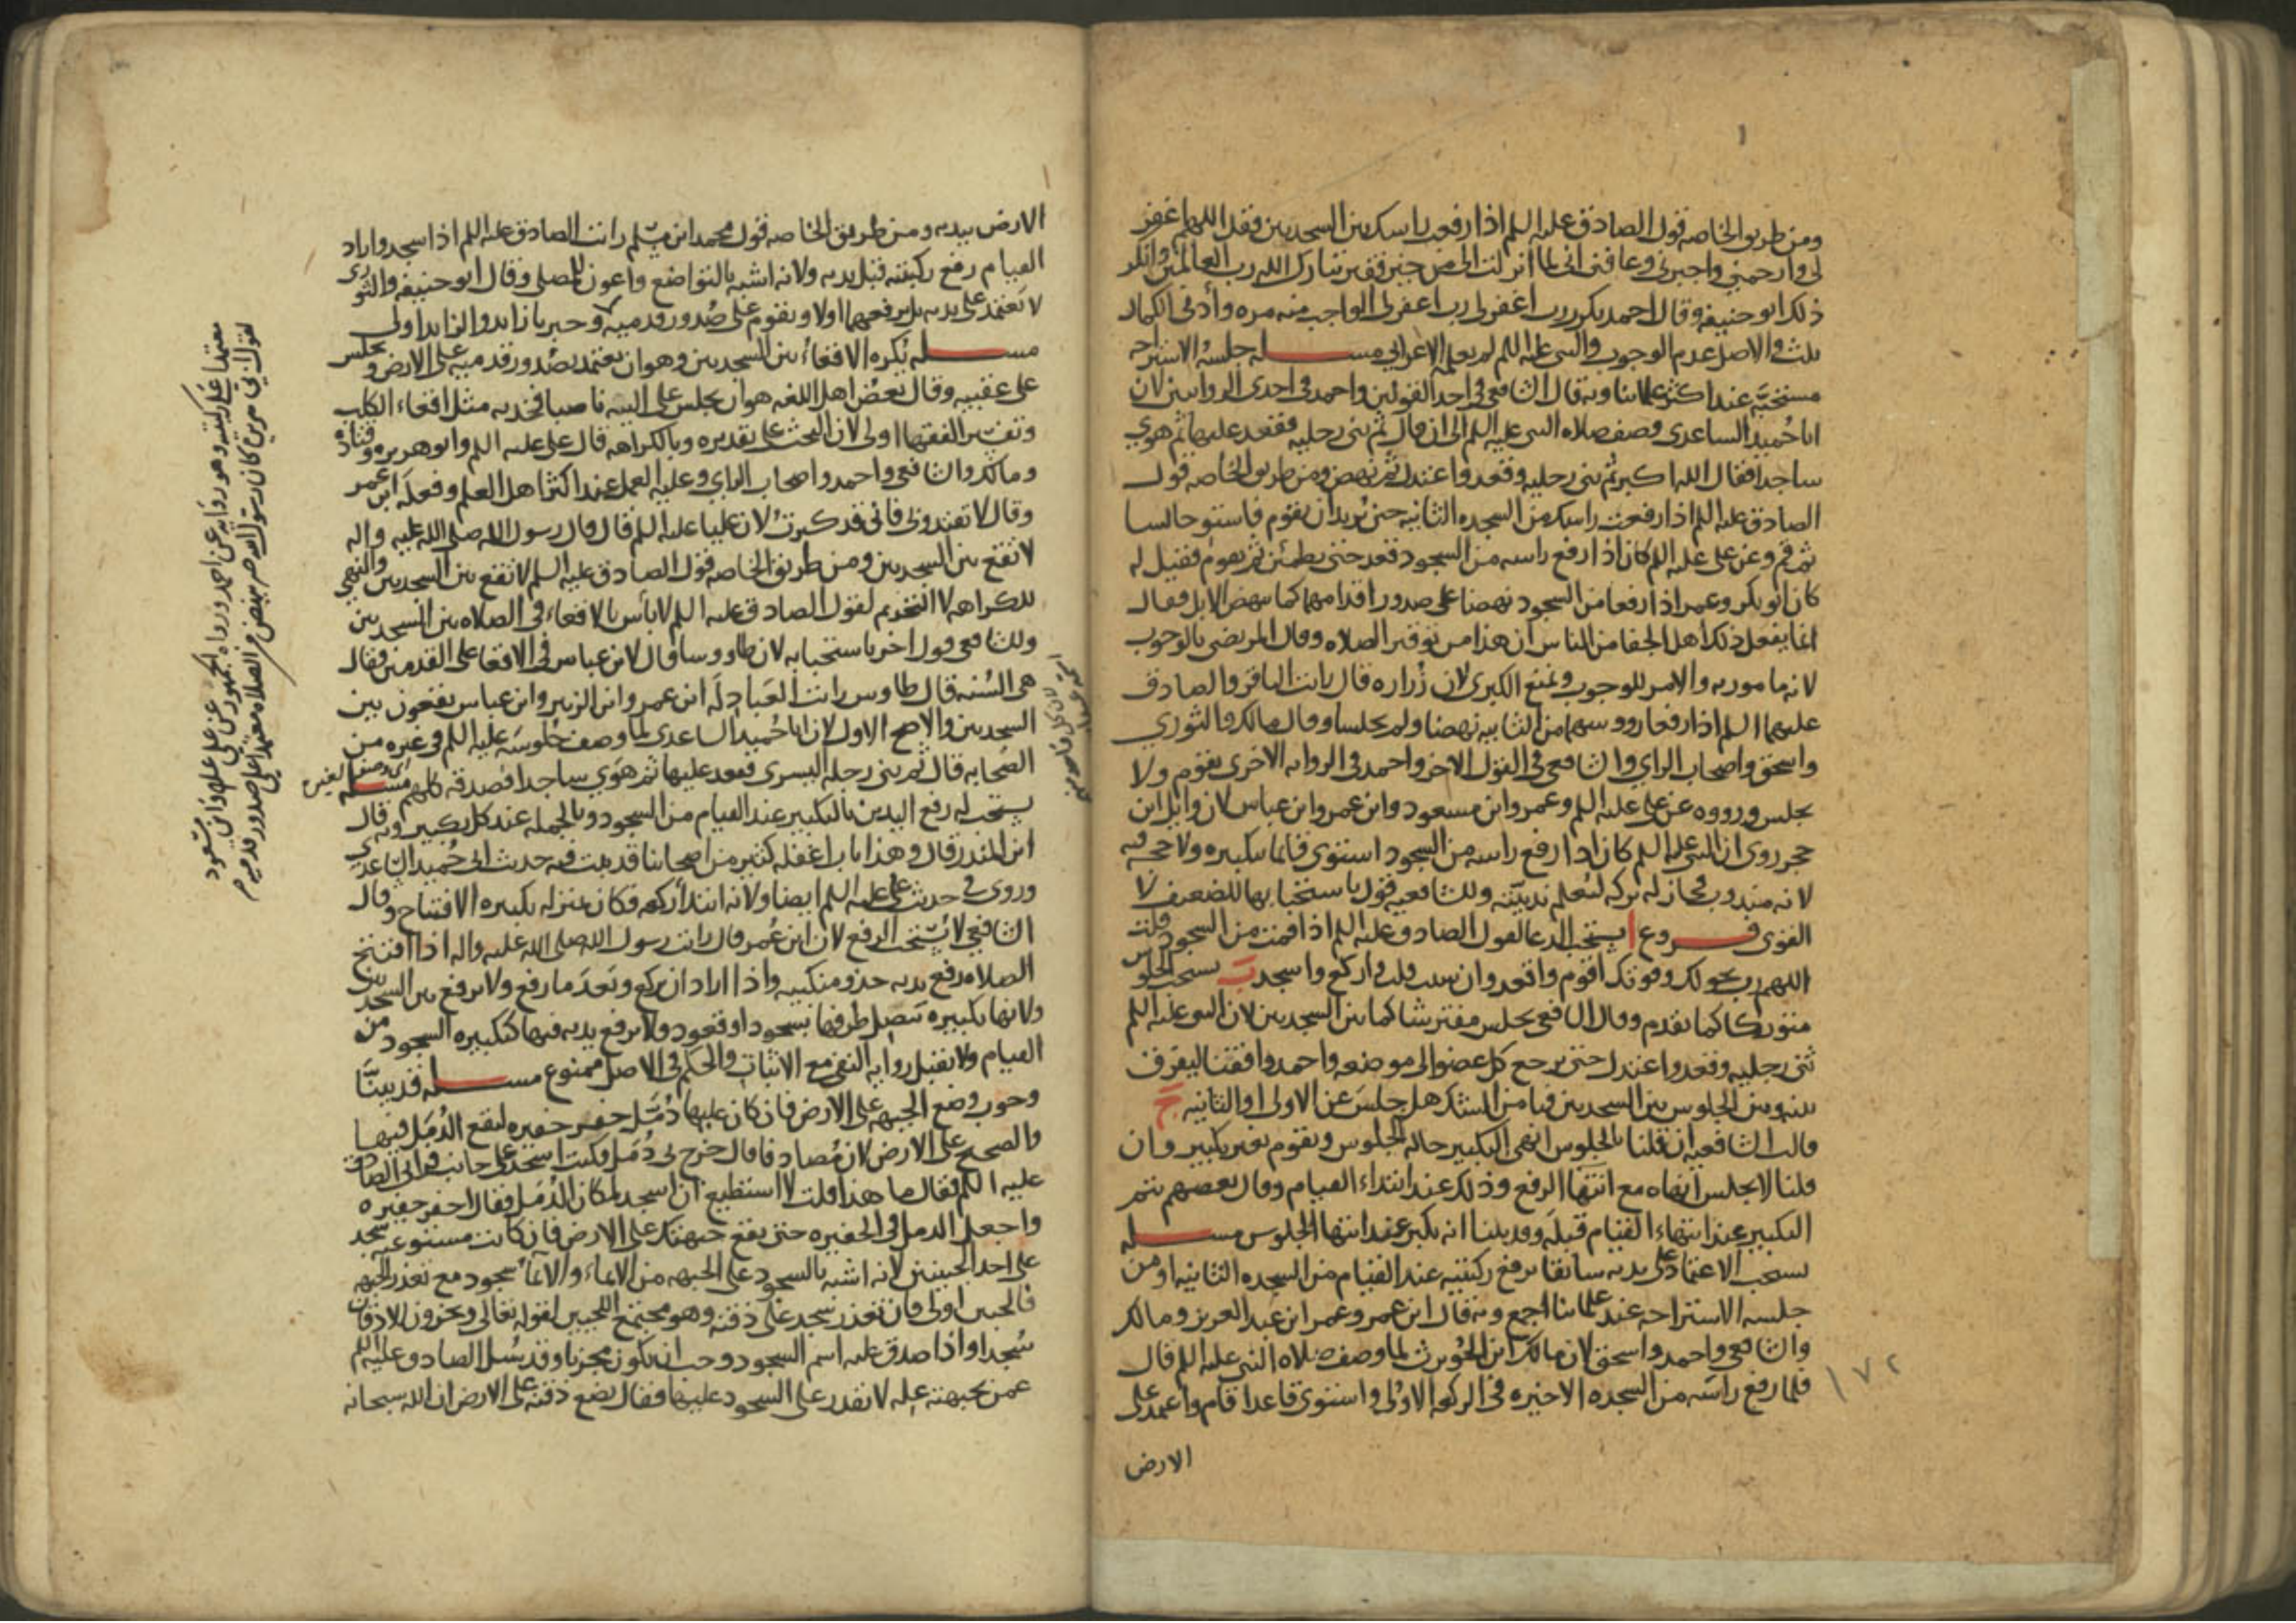 ومن طريق الخاصه قول الصادق عليه السلم اذا رفعت راسك من السجدتين فقل اللهم اغفر
لى وارحمني واجبرنى وعافنى انى لما انزلت الى من خير فقير تبارك الله رب العالمين وانكر
ذلك ابو حنيفه وقال احمد يكرر رب اغفر لى رب اغفر لى الواجب منه مره وأدنى الكمال
ثلث والاصل عدم الوجوب والنبى عليه السلم لم يعلمه الاعرابى مسـله جلسة الاستراحه
مستحبّه عند اكثر علمائنا وبه قال الشافعى فى احد القولين واحمد فى احدى الروايتين لان
ابا حُميد الساعدى وصف صلاه النبى عليه السلم الى ان قال ثم ثنى رجليه فقعد عليها ثم هوي
ساجدا فقال الله اكبر ثم ثنى رجليه وقعد واعتدل ثم نهض ومن طريق الخاصه قول
الصادق عليه السلم اذا رفعت راسك من السجده الثانيه حين تريد ان تقوم فاستو جالسا
ثم قم وعن على عليه السلم كان اذا رفع راسه من السجود قعد حتى يطمئن ثم يقوم فقيل له
كان ابو بكر وعمر اذا رفعا من السجود نهضا على صدور اقدامهما كما تنهض الابل فقال
انما يفعل ذلك اهل الجفا من الناس ان هذا من توقير الصلاه وقال المرتضى بالوجوب
لانه مامور به والامر للوجوب ونمنع الكبرى لان زُراره قال رايت الباقر والصادق
عليهما السلم اذا رفعا رووسهما من الثانيه نهضا ولم يجلسا وقال مالك والثوري
واسحق واصحاب الراي والشافعى فى القول الاخر واحمد فى الروايه الاخرى يقوم ولا
يجلس ورووه عن على عليه السلم وعمر وابن مسعود وابن عمر وابن عباس لان وايل ابن
حجر روى ان النبى عليه السلم كان اذا رفع راسه من السجود استوى قائما بتكبيره ولا حجه فيه
لانه مندوب فجاز له تركه لتُعلم ندبيّته وللشافعيه قول باستحبابها للضعيف لا
القوى فـروع ا يستحب الدعا لقول الصادق عليه السلم اذا قمت من السجود قلت
اللهم رب بحولك وقوتك اقوم واقعد وان شئت قلت واركع واسجد ب يستحب الجلوس
متوركا كما تقدم وقال الشافعى يجلس مفترشا كما بين السجدتين لان النبى عليه السلم
ثنى رجليه وقعد واعتدل حتى يرجع كل عضو الى موضعه واحمد وافقنا ليفرق
بينه وبين الجلوس بين السجدتين فيامن الشك هل جلس عن الاولى او الثانيه ج
قالت الشافعيه ان قلنا بالجلوس انهى التكبير حاله الجلوس ويقوم بغير تكبير وان
قلنا لا يجلس انهاه مع انتها الرفع وذلك عند ابتداء القيام وقال بعضهم يتم
التكبير عند انتهاء القيام قبله وقد بينا انه يكبر عند انتها الجلوس مسـله
يستحب الاعتماد على يديه سابقا برفع ركبتيه عند القيام من السجده الثانيه او من
جلسه الاستراحه عند علمائنا اجمع وبه قال ابن عمر وعمر ابن عبد العزيز ومالك
والشافعى واحمد واسحق لان مالك ابن الحُويرث لما وصف صلاه النبى عليه السلم قال
فلما رفع راسه من السجده الاخيره فى الركعه الاولى واستوى قاعدا قام واعتمد على
الارض
١٧٢
الارض بيديه ومن طريق الخاصه قول محمد ابن مسلم رايت الصادق عليه السلم اذا سجد واراد
القيام رفع ركبتيه قبل يديه ولانه اشبه بالتواضع واعون للمصلى وقال ابو حنيفه والثورى
لا يعتمد على يديه بل يرفعهما اولا ويقوم على صُدور قدميه وخبرنا زايد والزايد اولى
مسـله يُكره الاقعاء بين السجدتين وهو ان يعتمد بصُدور قدميه على الارض ويجلس
على عقبيه وقال بعض اهل اللغه هو ان يجلس على اليتيه ناصبا فخذيه مثل اقعاء الكلب
وتفسير الفقها اولى لان البحث على تقديره وبالكراهه قال على عليه السلم وابو هريره وقتاده
ومالك والشافعى واحمد واصحاب الراي وعليه العمل عند اكثر اهل العلم وفعله ابن عمر
وقال لا تقتدوا بى فانى قد كبرتُ لان عليا عليه السلم قال قال رسول الله صلى الله عليه واله
لا تقع بين السجدتين ومن طريق الخاصه قول الصادق عليه السلم لا تقع بين السجدتين والنهى
للكراهه لا التحريم لقول الصادق عليه السلم لا بأس بالاقعاء فى الصلاه بين السجدتين
وللشافعى قول اخر باستحبابه لان طاووسا قال لابن عباس فى الاقعا على القدمين فقال
هى السُنه قال طاوس رايت العَبادِلَه ابن عمر وابن الزبير وابن عباس يقعون بين
السجدتين والاصح الاول لان ابا حُميد الساعدى لما وصف جُلوسَه عليه السلم فى عشره من
الصحابه قال ثم ثنى رجله اليسرى فقعد عليها ثم هَوى ساجدا فصدقه كلهم مسـله
يستحب له رفع اليدين بالتكبير عند القيام من السجود وبالجمله عند كل تكبير وبه قال
ابن المنذر قال وهذا باب اغفله كثير من اصحابنا قد ثبت فيه حديث ابى حُميد الساعدي
وروى فى حديث على عليه السلم ايضا ولانه ابتدأ ركعه فكان بمنزله تكبيره الافتتاح وقال
الشافعى لا يُستحب الرفع لان ابن عُمر قال رايت رسول الله صلى الله عليه واله اذا افتتح
الصلاه رفع يديه حذو منكبيه واذا اراد ان يركع وبَعدَ ما رفع ولا يرفع بين السجدتين
ولانها تكبيره تتصل طرفها بسجود او قعود ولا يرفع يديه فيها كتكبيره السجود من
القيام ولا تقبل روايه النفى مع الاثبات والحكم فى الاصل ممنوع مسـله قد بيّنّا
وجوب وضع الجبهه على الارض فان كان عليها دُمّل حفر حفيره ليقع الدُمّل فيها
والصحيح على الارض لان مُصادفا قال خرج لى دُمّل وكنت اسجد على جانب فراى الصادق
عليه السلم فقال ما هذا قلت لا استطيع ان اسجد لمكان الدُمّل فقال احفر حفيره
واجعل الدمل فى الحفيره حتى تقع جبهتك على الارض فان كانت مستوعبه سجد
على احد الجبينين لانه اشبه بالسجود على الجبهه من الايماء والايمآ سجود مع تعذر الجبهه
فالجبين اولى فان تعذر سجد على ذقنه وهو مجتمع اللحيين لقوله تعالى ويخرون للاذقان
سُجدا واذا صدق عليه اسم السجود وجب ان يكون مجزيا وقد سُئل الصادق عليه السلم
عمن بجبهته عله لا تقدر على السجود عليها فقال يضع ذقنه على الارض ان الله سبحانه
معتمدا على ركبتيه وهو روايه عن احمد ورواه الجمهور عن على علم وابن مسعود
صدور قدميه